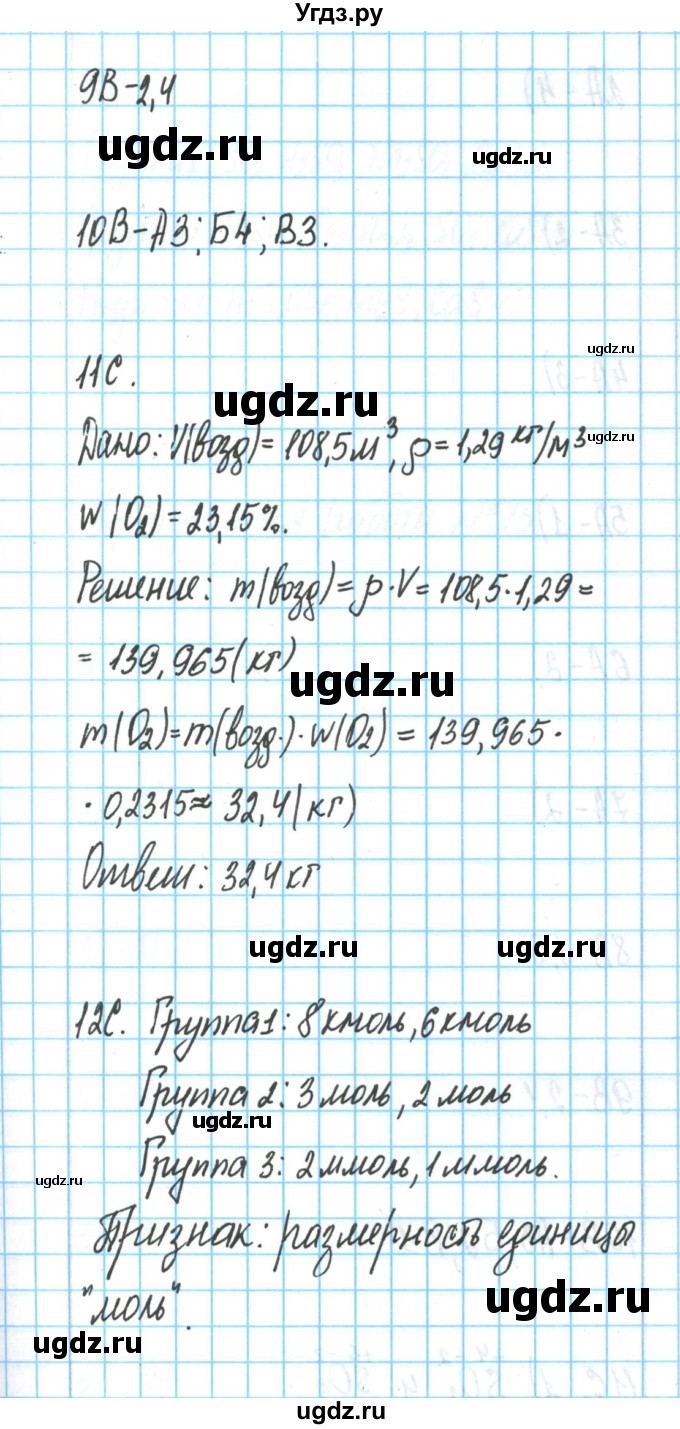 Угдз.ру
9В-2,4
ugdz.ru
ugdz.ru
10В-А3; Б4; В3.
ugdz.ru
11С.
ugdz.ru
Дано: V(возд)= 108,5м³, ρ= 1,29 кг/м³
ugdz.ru
W(O₂)= 23,15%.
Решение: m(возд)= ρ·V= 108,5·1,29=
= 139,965(кг)
ugdz.ru
m(O₂)=m(возд.)·w(O₂) = 139,965·
·0,2315≈ 32,4(кг)
Ответ: 32,4 кг
ugdz.ru
ugdz.ru
12С. Группа1: 8 кмоль, 6 кмоль
Группа 2: 3 моль, 2 моль
ugdz.ru
Группа 3: 2ммоль, 1ммоль.
ugdz.ru
Признак: размерность единицы
ugdz.ru
"моль".
ugdz.ru
ugdz.ru